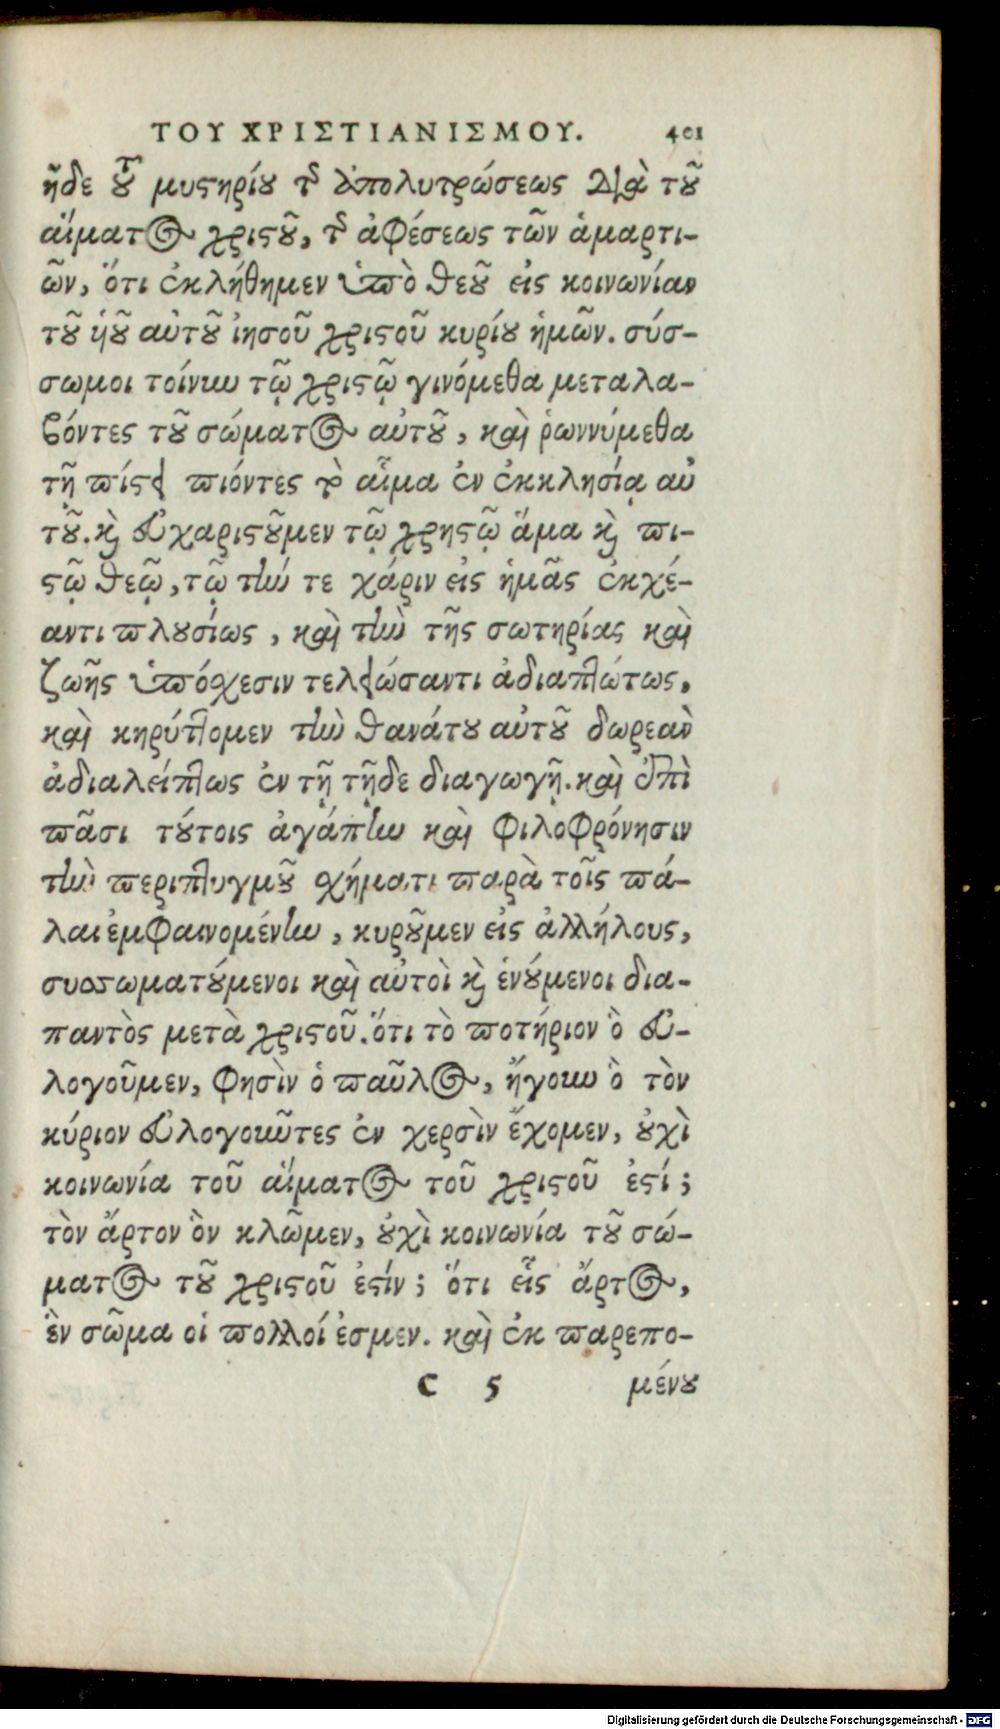 ΤΟΥ ΧΡΙΣΤΙΑΝΙΣΜΟΥ. 401
ῇδε τοῦ μυστηρίου τῆς ἀπολυτρώσεως διὰ τοῦ
αἵματος χριστοῦ, τῆς ἀφέσεως τῶν ἁμαρτι-
ῶν, ὅτι ἐκλήθημεν ὑπὸ θεοῦ εἰς κοινωνίαν
τοῦ ὑοῦ αὐτοῦ ἰησοῦ χριστοῦ κυρίου ἡμῶν. σύσ-
σωμοι τοίνυν τῷ χριστῷ γινόμεθα μεταλα-
βόντες τοῦ σώματος αὐτοῦ, καὶ ῥωννύμεθα
τῇ πίστει πιόντες τὸ αἷμα ἐν ἐκκλησίᾳ αὐ
τοῦ. καὶ εὐχαριστοῦμεν τῷ χρηστῷ ἅμα καὶ πι-
στῷ θεῷ, τῷ τήν τε χάριν εἰς ἡμᾶς ἐκχέ-
αντι πλουσίως, καὶ τὴν τῆς σωτηρίας καὶ
ζωῆς ὑπόχεσιν τελειώσαντι ἀδιαπτώτως,
καὶ κηρύττομεν τὴν θανάτου αὐτοῦ δωρεὰν
ἀδιαλείπτως ἐν τῇ τῇδε διαγωγῇ. καὶ ἐπὶ
πᾶσι τούτοις ἀγάπην καὶ φιλοφρόνησιν
τὴν περιπτυγμοῦ σχήματι παρὰ τοῖς πά-
λαι ἐμφαινομένην, κυροῦμεν εἰς ἀλλήλους,
συσσωματούμενοι καὶ αὐτοὶ καὶ ἑνούμενοι δια-
παντὸς μετὰ χριστοῦ. ὅτι τὸ ποτήριον ὃ εὐ-
λογοῦμεν, φησὶν ὁ παῦλος, ἤγουν ὃ τὸν
κύριον εὐλογοῦντες ἐν χερσὶν ἔχομεν, οὐχὶ
κοινωνία τοῦ αἵματος τοῦ χριστοῦ ἐστί;
τὸν ἄρτον ὃν κλῶμεν, οὐχὶ κοινωνία τοῦ σώ-
ματος τοῦ χριστοῦ ἐστίν; ὅτι εἷς ἄρτος,
ἓν σῶμα οἱ πολλοί ἐσμεν. καὶ ἐκ παρεπο-
C 5 μένου
Digitalisierung gefördert durch die Deutsche Forschungsgemeinschaft - DFG